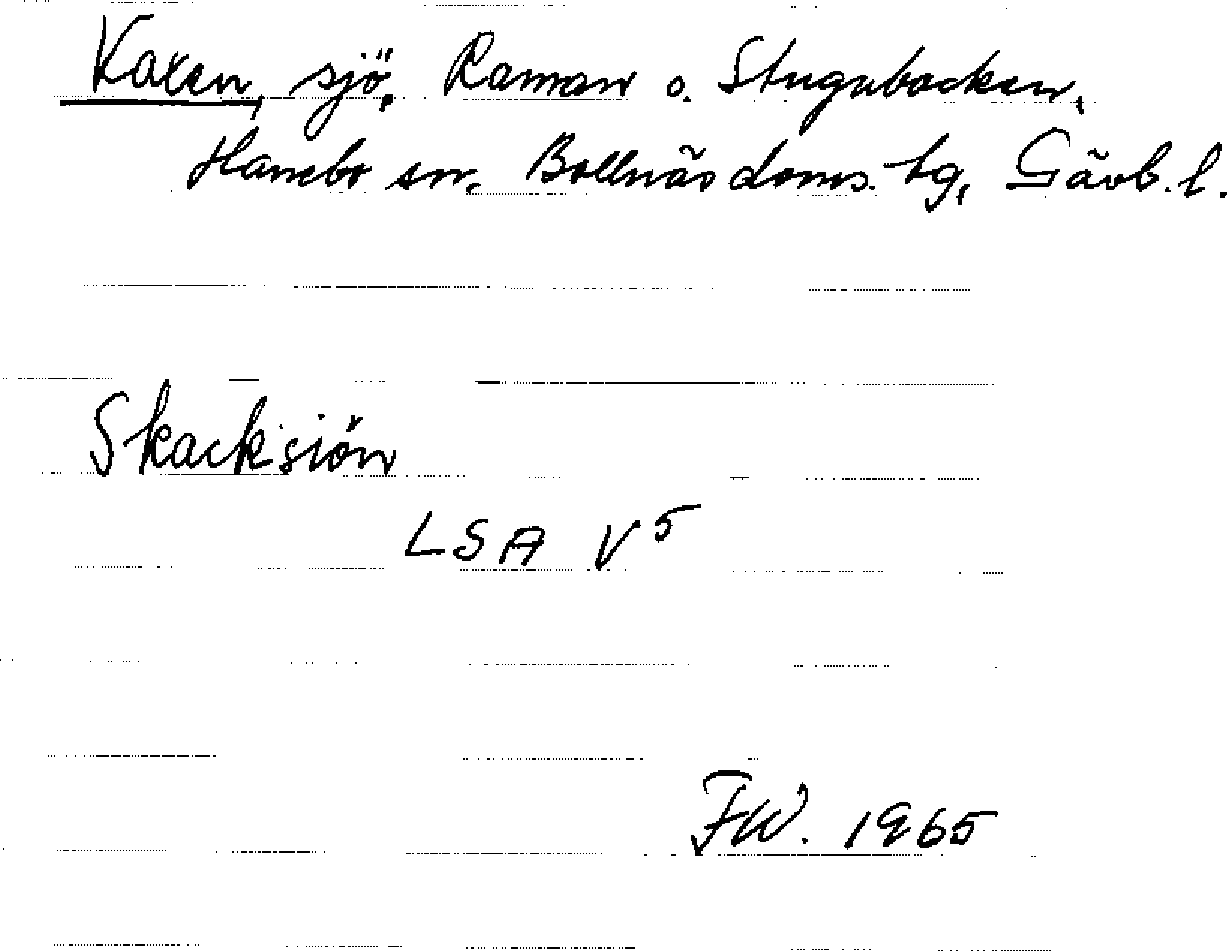 Kaxen, sjö, Raman o. Stugubacken,
Hanebo sn. Bollnäs doms. tg, Gävb. l.
Skacksiön
LSA V5
FW. 1965